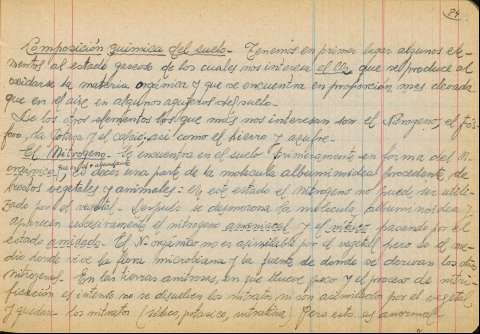 84
Composición química del suelo.- Tenemos en primer lugar algunos ele-
mentos al estado gaseoso de los cuales nos interesa el CO₂ que se produce al
oxidarse la materia orgánica y que se encuentra en proporción mas elevada
que en el aire en algunos agujeros del suelo.
De los otros elementos los que mas nos interesan son el Nitrogeno, el fós-
foro, la potasa y el calcio, asi como el hierro y azufre.
El Nitrogeno.- Se encuentra en el suelo primeramente en forma de N.
orgánico, es decir una parte de la molecula albuminoidea procedente, de
restos vegetales y animales: En este estado el nitrogeno no puede ser utili-
zado por el vegetal. Después se desmorona la molecula, albuminoidea y
aparecen sucesivamente el nitrogeno amoniacal y el nitrico pasando por el
estado amidado. El N orgánico no es asimilable por el vegetal pero es el me-
dio donde vive la flora microbiana y la fuente de donde se derivan los otros
nitrogenos. En las tierras arenosas, en que llueve poco y el proceso de nitri-
ficación es intenso no se disuelven los nitratos ni son asimilados por el vegetal,
y quedan los nitratos (sódico, potasico,) Pero esto es anormal